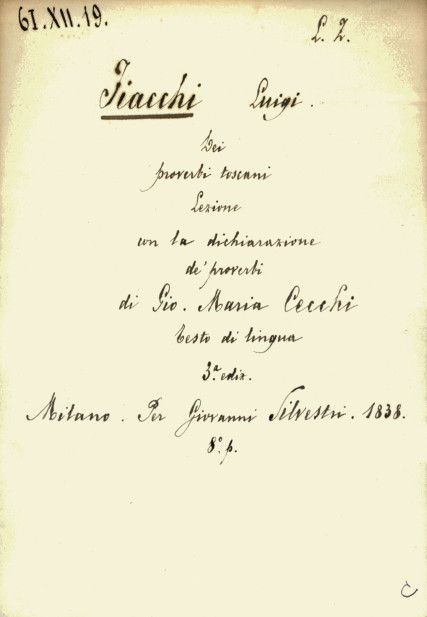 61.XII.19.
L. 2.
Fiacchi Luigi.
Dei
proverbi toscani
Lezione
con la dichiarazione
de' proverbi
di Gio. Maria Cecchi
testo di lingua
3.ª ediz.
Milano. Per Giovanni Silvestri. 1838.
8.º p.
C